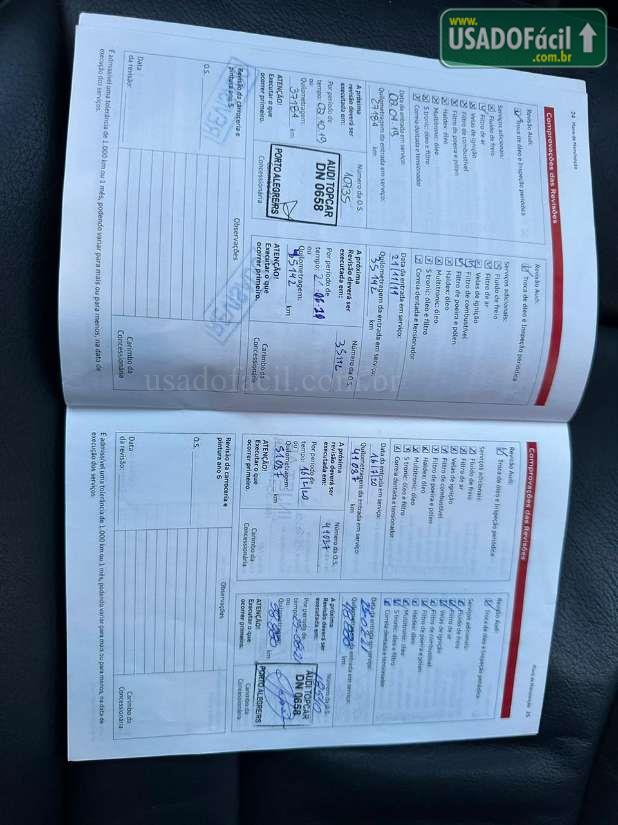 www.
USADOFácil
.com.br
24 Plano de Manutenção
Comprovações das Revisões
Revisão Audi:
Troca de óleo e Inspeção periódica
Serviços adicionais:
Fluido de freio
Filtro de ar
Velas de ignição
Filtro de combustível
Filtro de poeira e pólen
Haldex: óleo
Multitronic: óleo
S tronic: óleo e filtro
Correia dentada e tensionador
Data da entrada em serviço:
Quilometragem da entrada em serviço:
km
A próxima
revisão deverá ser
executada em:
Número da O.S.
10735
Por período de
tempo:
ou
Quilometragem:
km
ATENÇÃO!
Executar o que
ocorrer primeiro.
AUDI TOPCAR
DN 0658
PORTO ALEGRE/RS
Concessionária
Revisão da carroceria e
pintura ano 5
O.S.
Data
da revisão:
Observações
Carimbo da
Concessionária
É admissível uma tolerância de 1.000 km ou 1 mês, podendo variar para mais ou para menos, na data de
execução dos serviços.
Revisão Audi:
Troca de óleo e Inspeção periódica
Serviços adicionais:
Fluido de freio
Filtro de ar
Velas de ignição
Filtro de combustível
Filtro de poeira e pólen
Haldex: óleo
Multitronic: óleo
S tronic: óleo e filtro
Correia dentada e tensionador
Data da entrada em serviço:
21/11/19
Quilometragem da entrada em serviço:
35142 km
A próxima
revisão deverá ser
executada em:
Número da O.S.
Por período de
tempo:
ou
Quilometragem:
45142 km
ATENÇÃO!
Executar o que
ocorrer primeiro.
Carimbo da
Concessionária
usadofacil.com.br
Plano de Manutenção 25
Comprovações das Revisões
Revisão Audi:
Troca de óleo e Inspeção periódica
Serviços adicionais:
Fluido de freio
Filtro de ar
Velas de ignição
Filtro de combustível
Filtro de poeira e pólen
Haldex: óleo
Multitronic: óleo
S tronic: óleo e filtro
Correia dentada e tensionador
Data da entrada em serviço:
16/7/20
Quilometragem da entrada em serviço:
41087 km
A próxima
revisão deverá ser
executada em:
Número da O.S.
Por período de
tempo:
ou
Quilometragem:
km
ATENÇÃO!
Executar o que
ocorrer primeiro.
Carimbo da
Concessionária
Revisão da carroceria e
pintura ano 6
O.S.
Data
da revisão:
Observações
Carimbo da
Concessionária
É admissível uma tolerância de 1.000 km ou 1 mês, podendo variar para mais ou para menos, na data de
execução dos serviços.
Revisão Audi:
Troca de óleo e Inspeção periódica
Serviços adicionais:
Fluido de freio
Filtro de ar
Velas de ignição
Filtro de combustível
Filtro de poeira e pólen
Haldex: óleo
Multitronic: óleo
S tronic: óleo e filtro
Correia dentada e tensionador
Data da entrada em serviço:
Quilometragem da entrada em serviço:
km
A próxima
Revisão deverá ser
executada em:
Número da O.S.
Por período de
tempo:
ou
Quilometragem:
km
ATENÇÃO!
Executar o que
ocorrer primeiro.
AUDI TOPCAR
DN 0658
PORTO ALEGRE/RS
Carimbo da
Concessionária